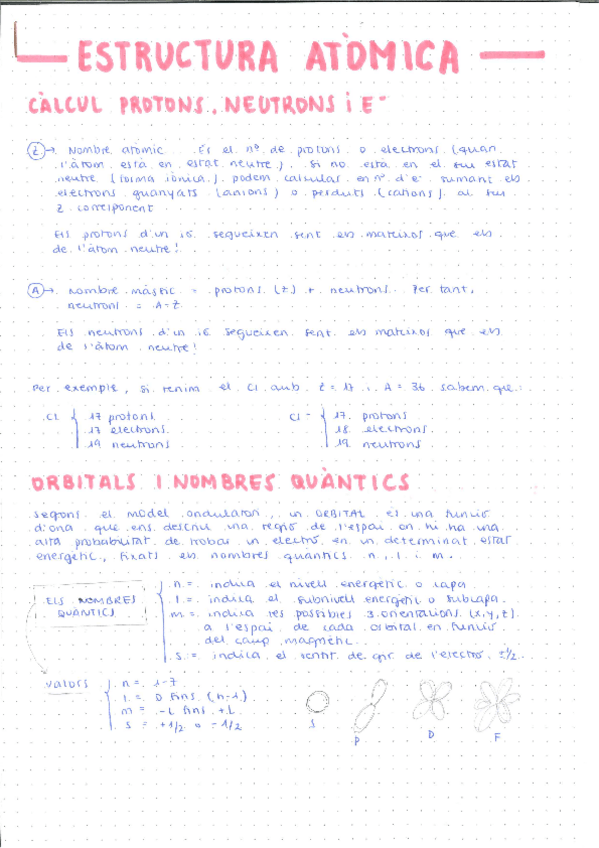 ESTRUCTURA ATÒMICA
CÀLCUL PROTONS, NEUTRONS i E⁻
Z → Nombre atòmic. És el nº de protons o electrons (quan
l'àtom està en estat neutre). Si no està en el seu estat
neutre (forma iònica), podem calcular en nº d'e⁻ sumant els
electrons guanyats (anions) o perduts (cations) al seu
Z corresponent
Els protons d'un ió segueixen sent els mateixos que els
de l'àtom neutre!
A → Nombre màssic = protons (Z) + neutrons. Per tant,
neutrons = A-Z
Els neutrons d'un ió segueixen sent els mateixos que els
de l'àtom neutre!
Per exemple, si tenim el Cl amb Z = 17 i A = 36 sabem que:
Cl { 17 protons
17 electrons
19 neutrons
Cl⁻ { 17 protons
18 electrons
19 neutrons
ORBITALS I NOMBRES QUÀNTICS
Segons el model ondulatori, un ORBITAL és una funció
d'ona que ens descriu una regió de l'espai on hi ha una
alta probabilitat de trobar un electró en un determinat estat
energètic, fixats els nombres quàntics n, l i m.
ELS NOMBRES
QUÀNTICS
n = indica el nivell energètic o capa
l = indica el subnivell energètic o subcapa
m = indica les possibles 3 orientacions (x,y,z)
a l'espai de cada orbital en funció
del camp magnètic
s = indica el sentit de gir de l'electró ±1/2
valors { n = 1-7
l = 0 fins (n-1)
m = -L fins +L
s = +1/2 o -1/2
S
P
D
F